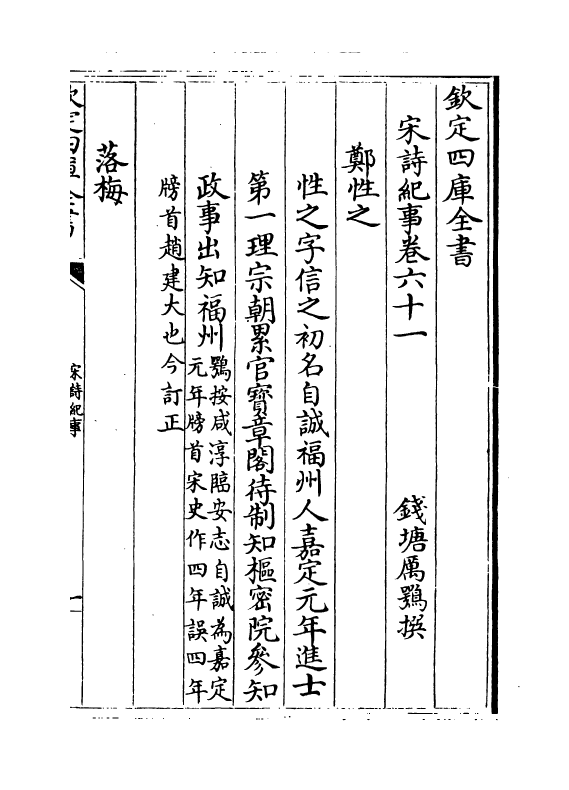 欽定四庫全書
宋詩紀事卷六十一
錢塘厲鶚撰
鄭性之
性之字信之初名自誠福州人嘉定元年進士
第一理宗朝累官寶章閣待制知樞密院參知
政事出知福州鶚按咸淳臨安志自誠為嘉定
元年牓首宋史作四年誤四年
牓首趙建大也今訂正
落梅
欽定四庫全書
宋詩紀事
一